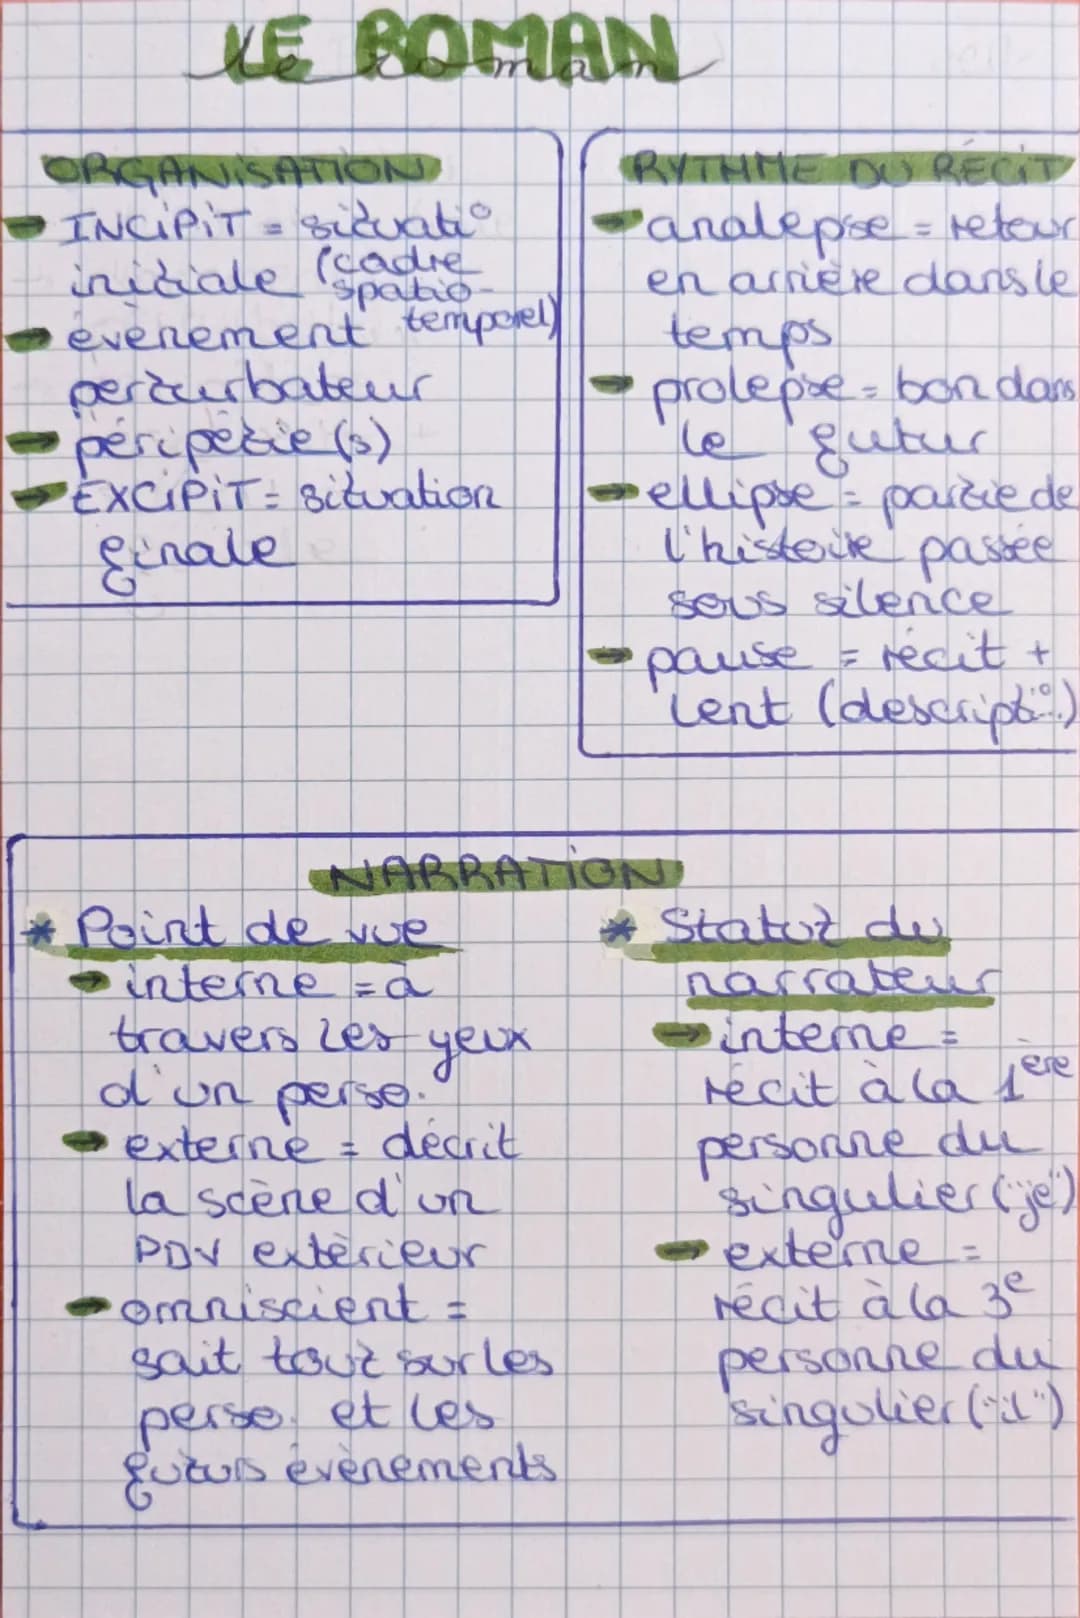 LE ROMAN
le roman
ORGANISATION
➡ INCIPIT = situati°
initiale (cadre
spatio-
temporel)
➡ évènement
perturbateur
➡ péripétie(s)
➡ EXCIPIT = situation
finale
RYTHME DU RÉCIT
➡ analepse = retour
en arrière dans le
temps
➡ prolepse = bon dans
le futur
➡ ellipse = partie de
l'histoire passée
sous silence
➡ pause = récit +
lent (descripti°.)
NARRATION
* Point de vue
➡ interne = à
travers les yeux
d'un perso.
➡ externe = décrit
la scène d'un
PDV extérieur
➡ omniscient =
sait tout sur les
perso. et les
futurs évènements
* Statut du
narrateur
➡ interne =
récit à la 1ère
personne du
singulier ("je")
➡ externe =
récit à la 3e
personne du
singulier ("il")